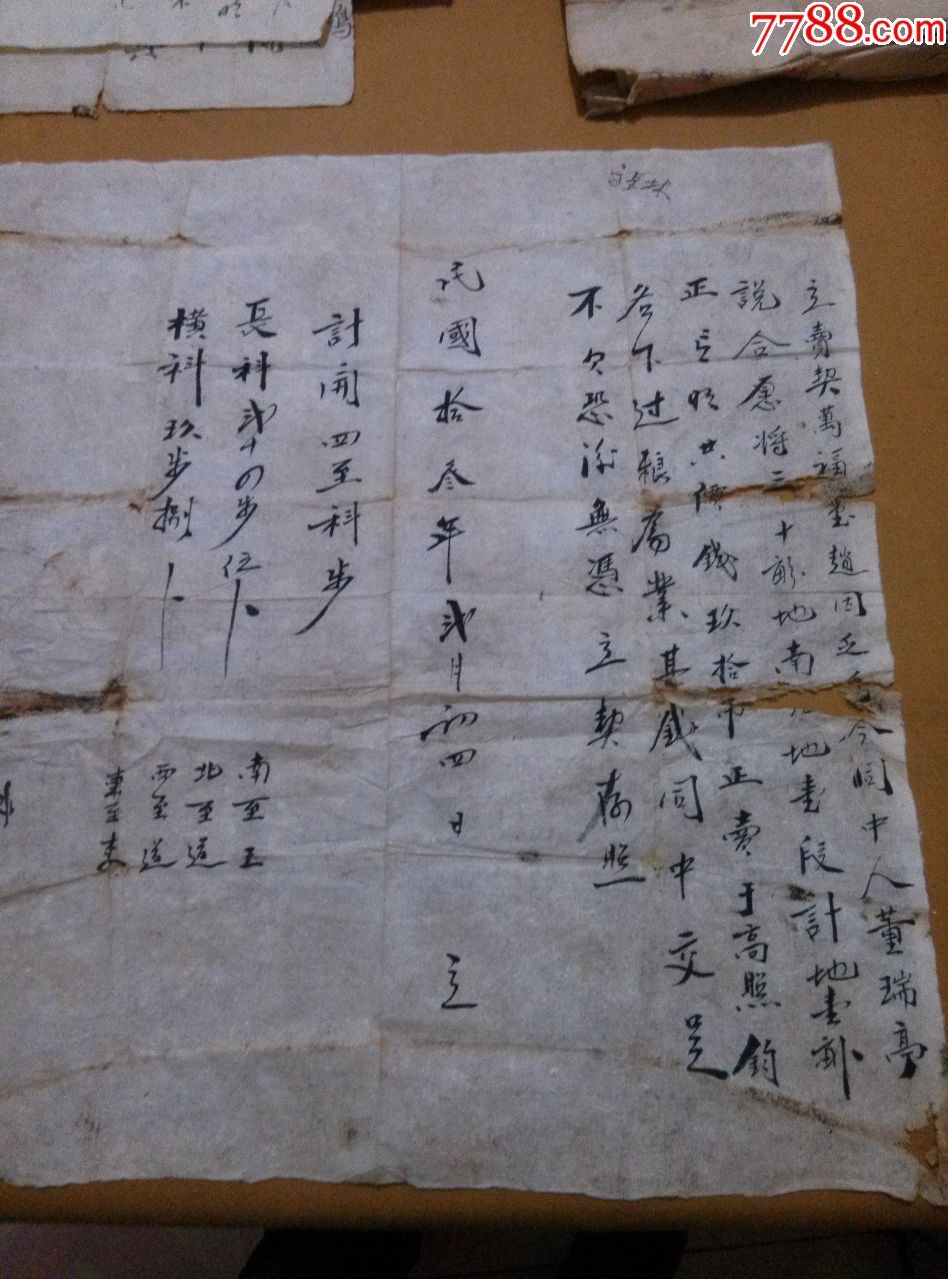 7788.com
立賣契萬福堂趙因乏今同中人董瑞亭
說合愿將三十畝地南地壹段計地壹畝
正言明共價錢玖拾吊正賣于高照鈞
名下过粮為業其錢同中交足
不欠恐後無憑立契存照
民國拾叁年貳月初四日 立
計開四至科步
長科貳十四步伍
橫科玖步捌
南至王
北至道
西至道
東至